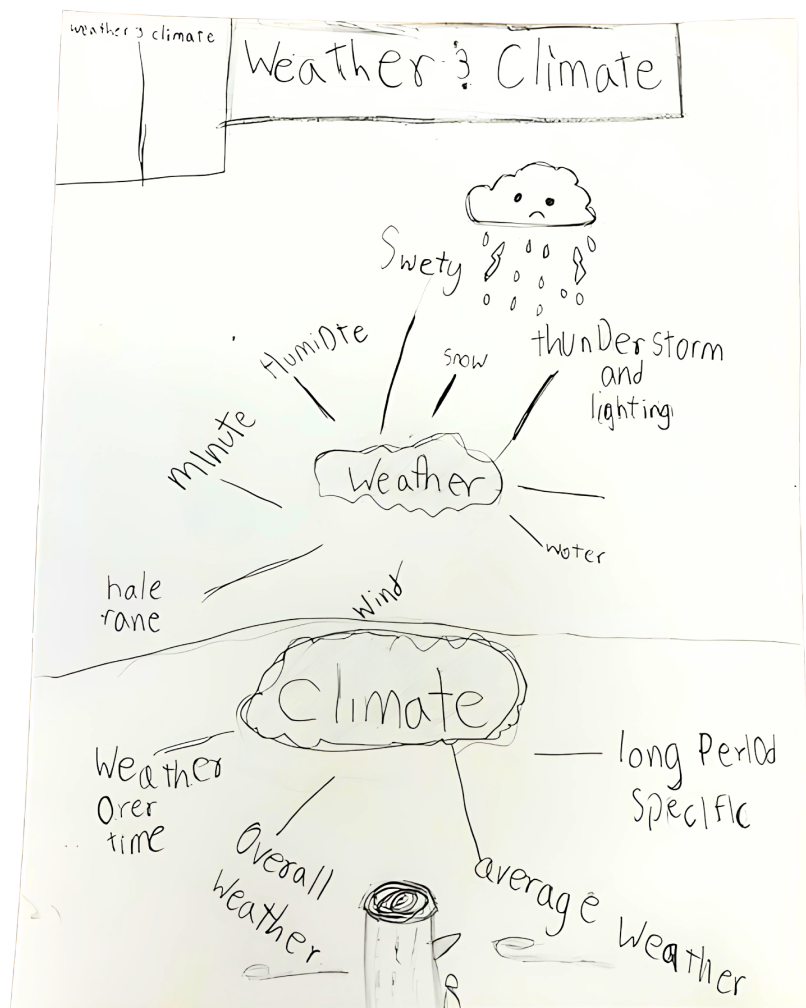 weather & climate
Weather & Climate
Swety
HumiDte
snow
thunDerstorm
and
lighting
mInute
Weather
woter
hale
rane
wind
Climate
Weather
Orer
time
long PerIOd
SPecIfIc
Overall
Weather
average Weather